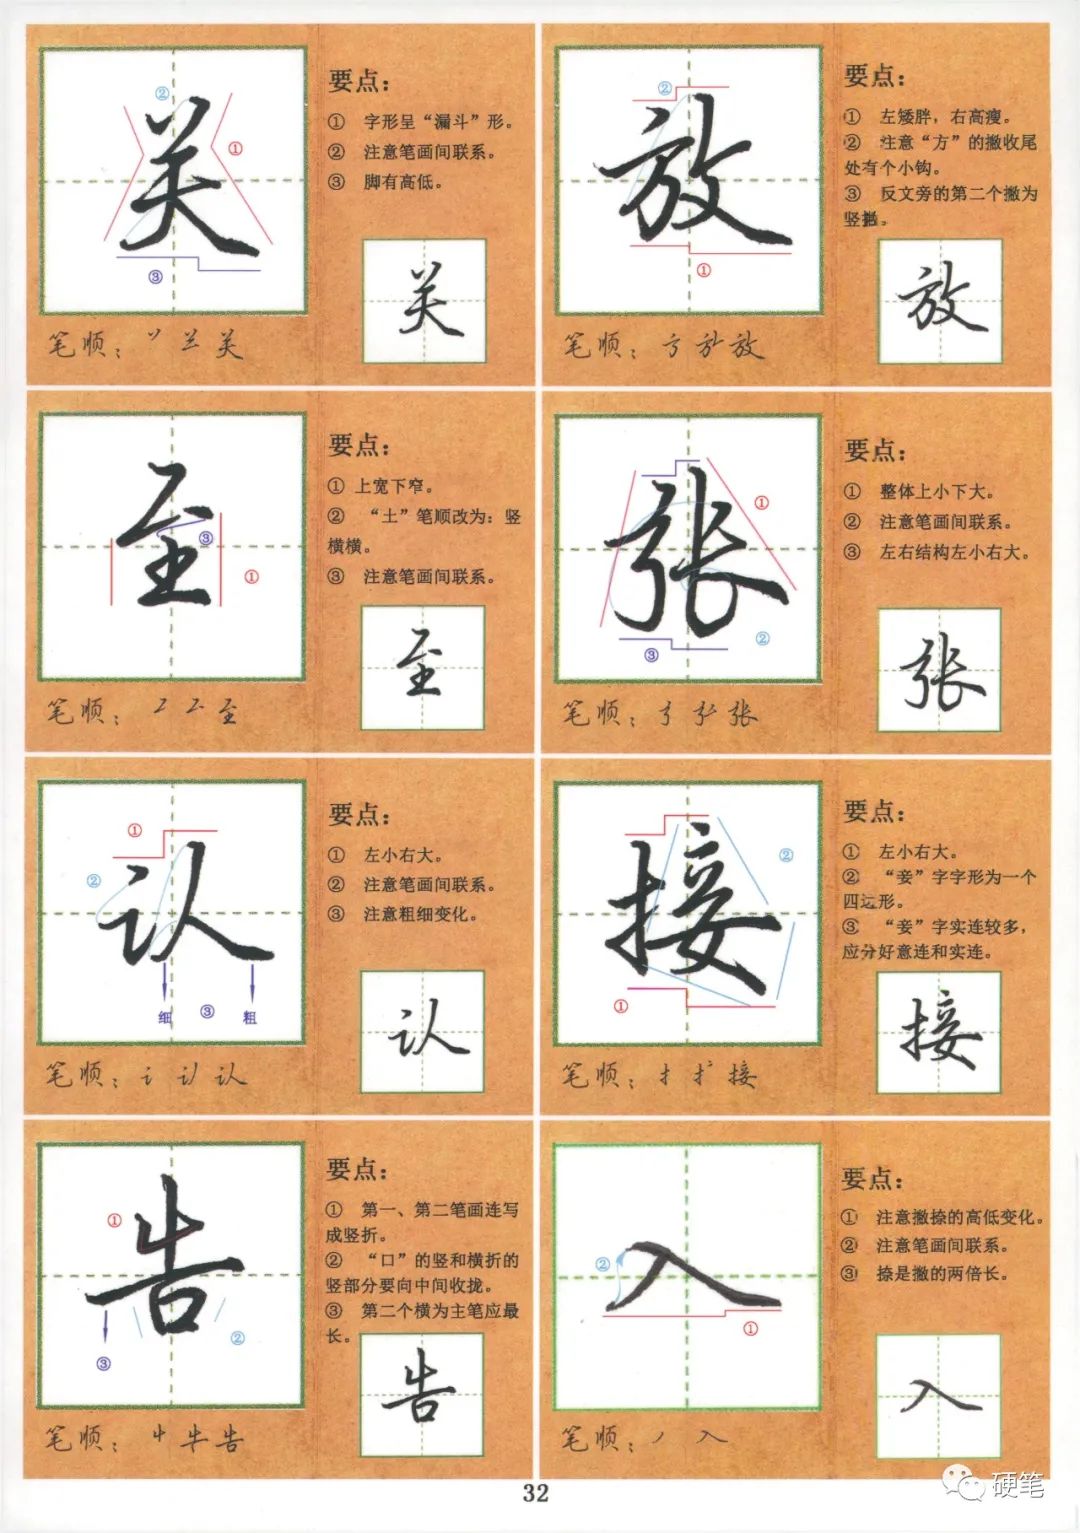 关
②
①
③
要点：
① 字形呈“漏斗”形。
② 注意笔画间联系。
③ 脚有高低。
关
笔顺： 关
放
②
①
要点：
① 左矮胖，右高瘦。
② 注意“方”的撇收尾
处有个小钩。
③ 反文旁的第二个撇为
竖撇。
放
笔顺： 放
至
③
①
要点：
① 上宽下窄。
② “土”笔顺改为：竖
横横。
③ 注意笔画间联系。
至
笔顺： 至
张
①
②
③
要点：
① 整体上小下大。
② 注意笔画间联系。
③ 左右结构左小右大。
张
笔顺： 张
认
①
②
细 ③ 粗
要点：
① 左小右大。
② 注意笔画间联系。
③ 注意粗细变化。
认
笔顺： 讠 认
接
②
①
要点：
① 左小右大。
② “妾”字字形为一个
四边形。
③ “妾”字实连较多，
应分好意连和实连。
接
笔顺： 扌 接
告
①
②
③
要点：
① 第一、第二笔画连写
成竖折。
② “口”的竖和横折的
竖部分要向中间收拢。
③ 第二个横为主笔应最
长。
告
笔顺： 告
入
②
①
要点：
① 注意撇捺的高低变化。
② 注意笔画间联系。
③ 捺是撇的两倍长。
入
笔顺： 丿 入
32
硬笔